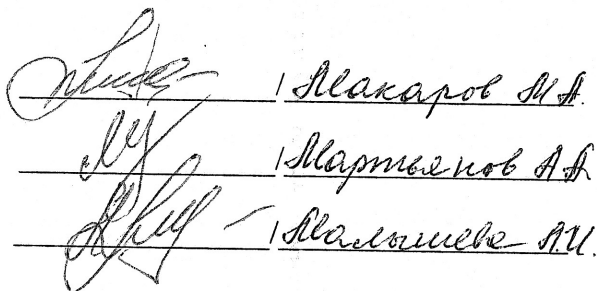 / Макаров М.А.
/ Мартьянов А.А
/ Малышева А.И.